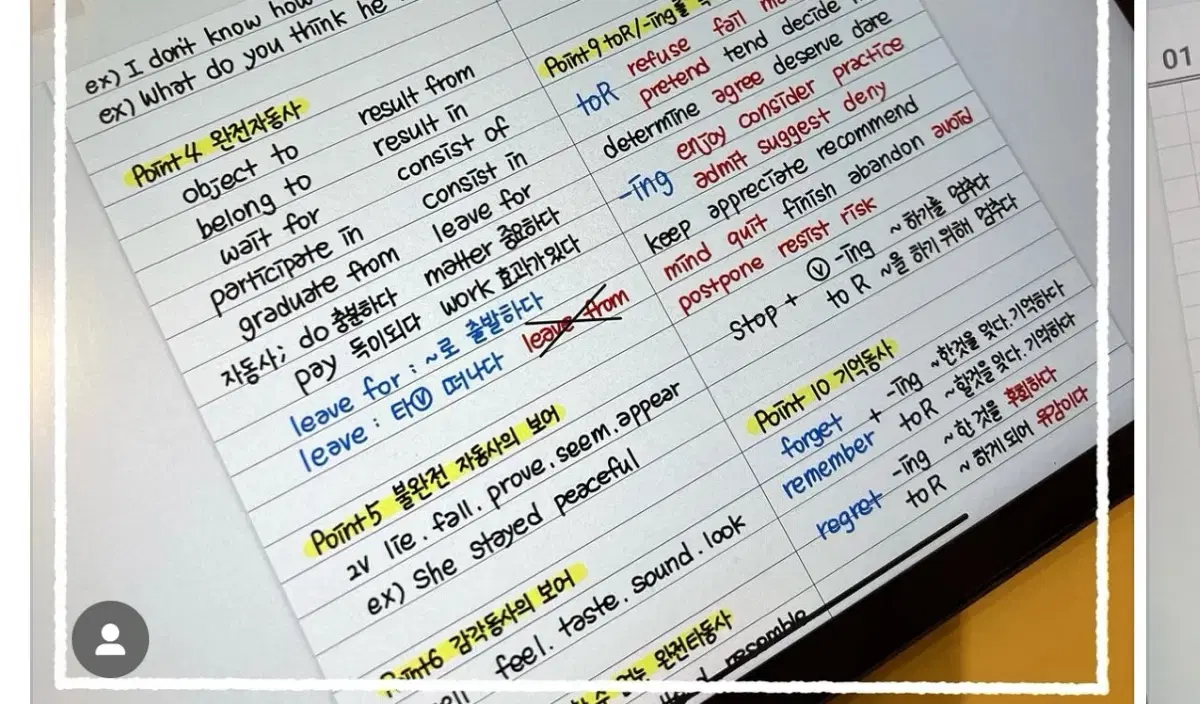 ex) I don't know how
ex) What do you think he
Point4 완전자동사
object to result from
belong to result in
wait for consist of
participate in consist in
graduate from leave for
자동사; do 충분하다 matter 중요하다
pay 득이되다 work 효과가있다
leave for : ~로 출발하다
leave : 타Ⓥ 떠나다 leave from
Point5 불완전 자동사의 보어
2V lie. fall. prove. seem. appear
ex) She stayed peaceful
Point6 감각동사의 보어
feel. taste. sound. look
없는 완전타동사
resemble
Point9 toR/-ing를
toR refuse fail
pretend tend decide
determine agree deserve dare
-ing enjoy consider practice
admit suggest deny
keep appreciate recommend
mind quit finish abandon avoid
postpone resist risk
stop + Ⓥ -ing ~하기를 멈추다
to R ~을 하기 위해 멈추다
Point 10 기억동사
forget + -ing ~한것을 잊다. 기억하다
remember to R ~할것을 잊다. 기억하다
regret -ing ~한 것을 후회하다
to R ~하게 되어 유감이다
01